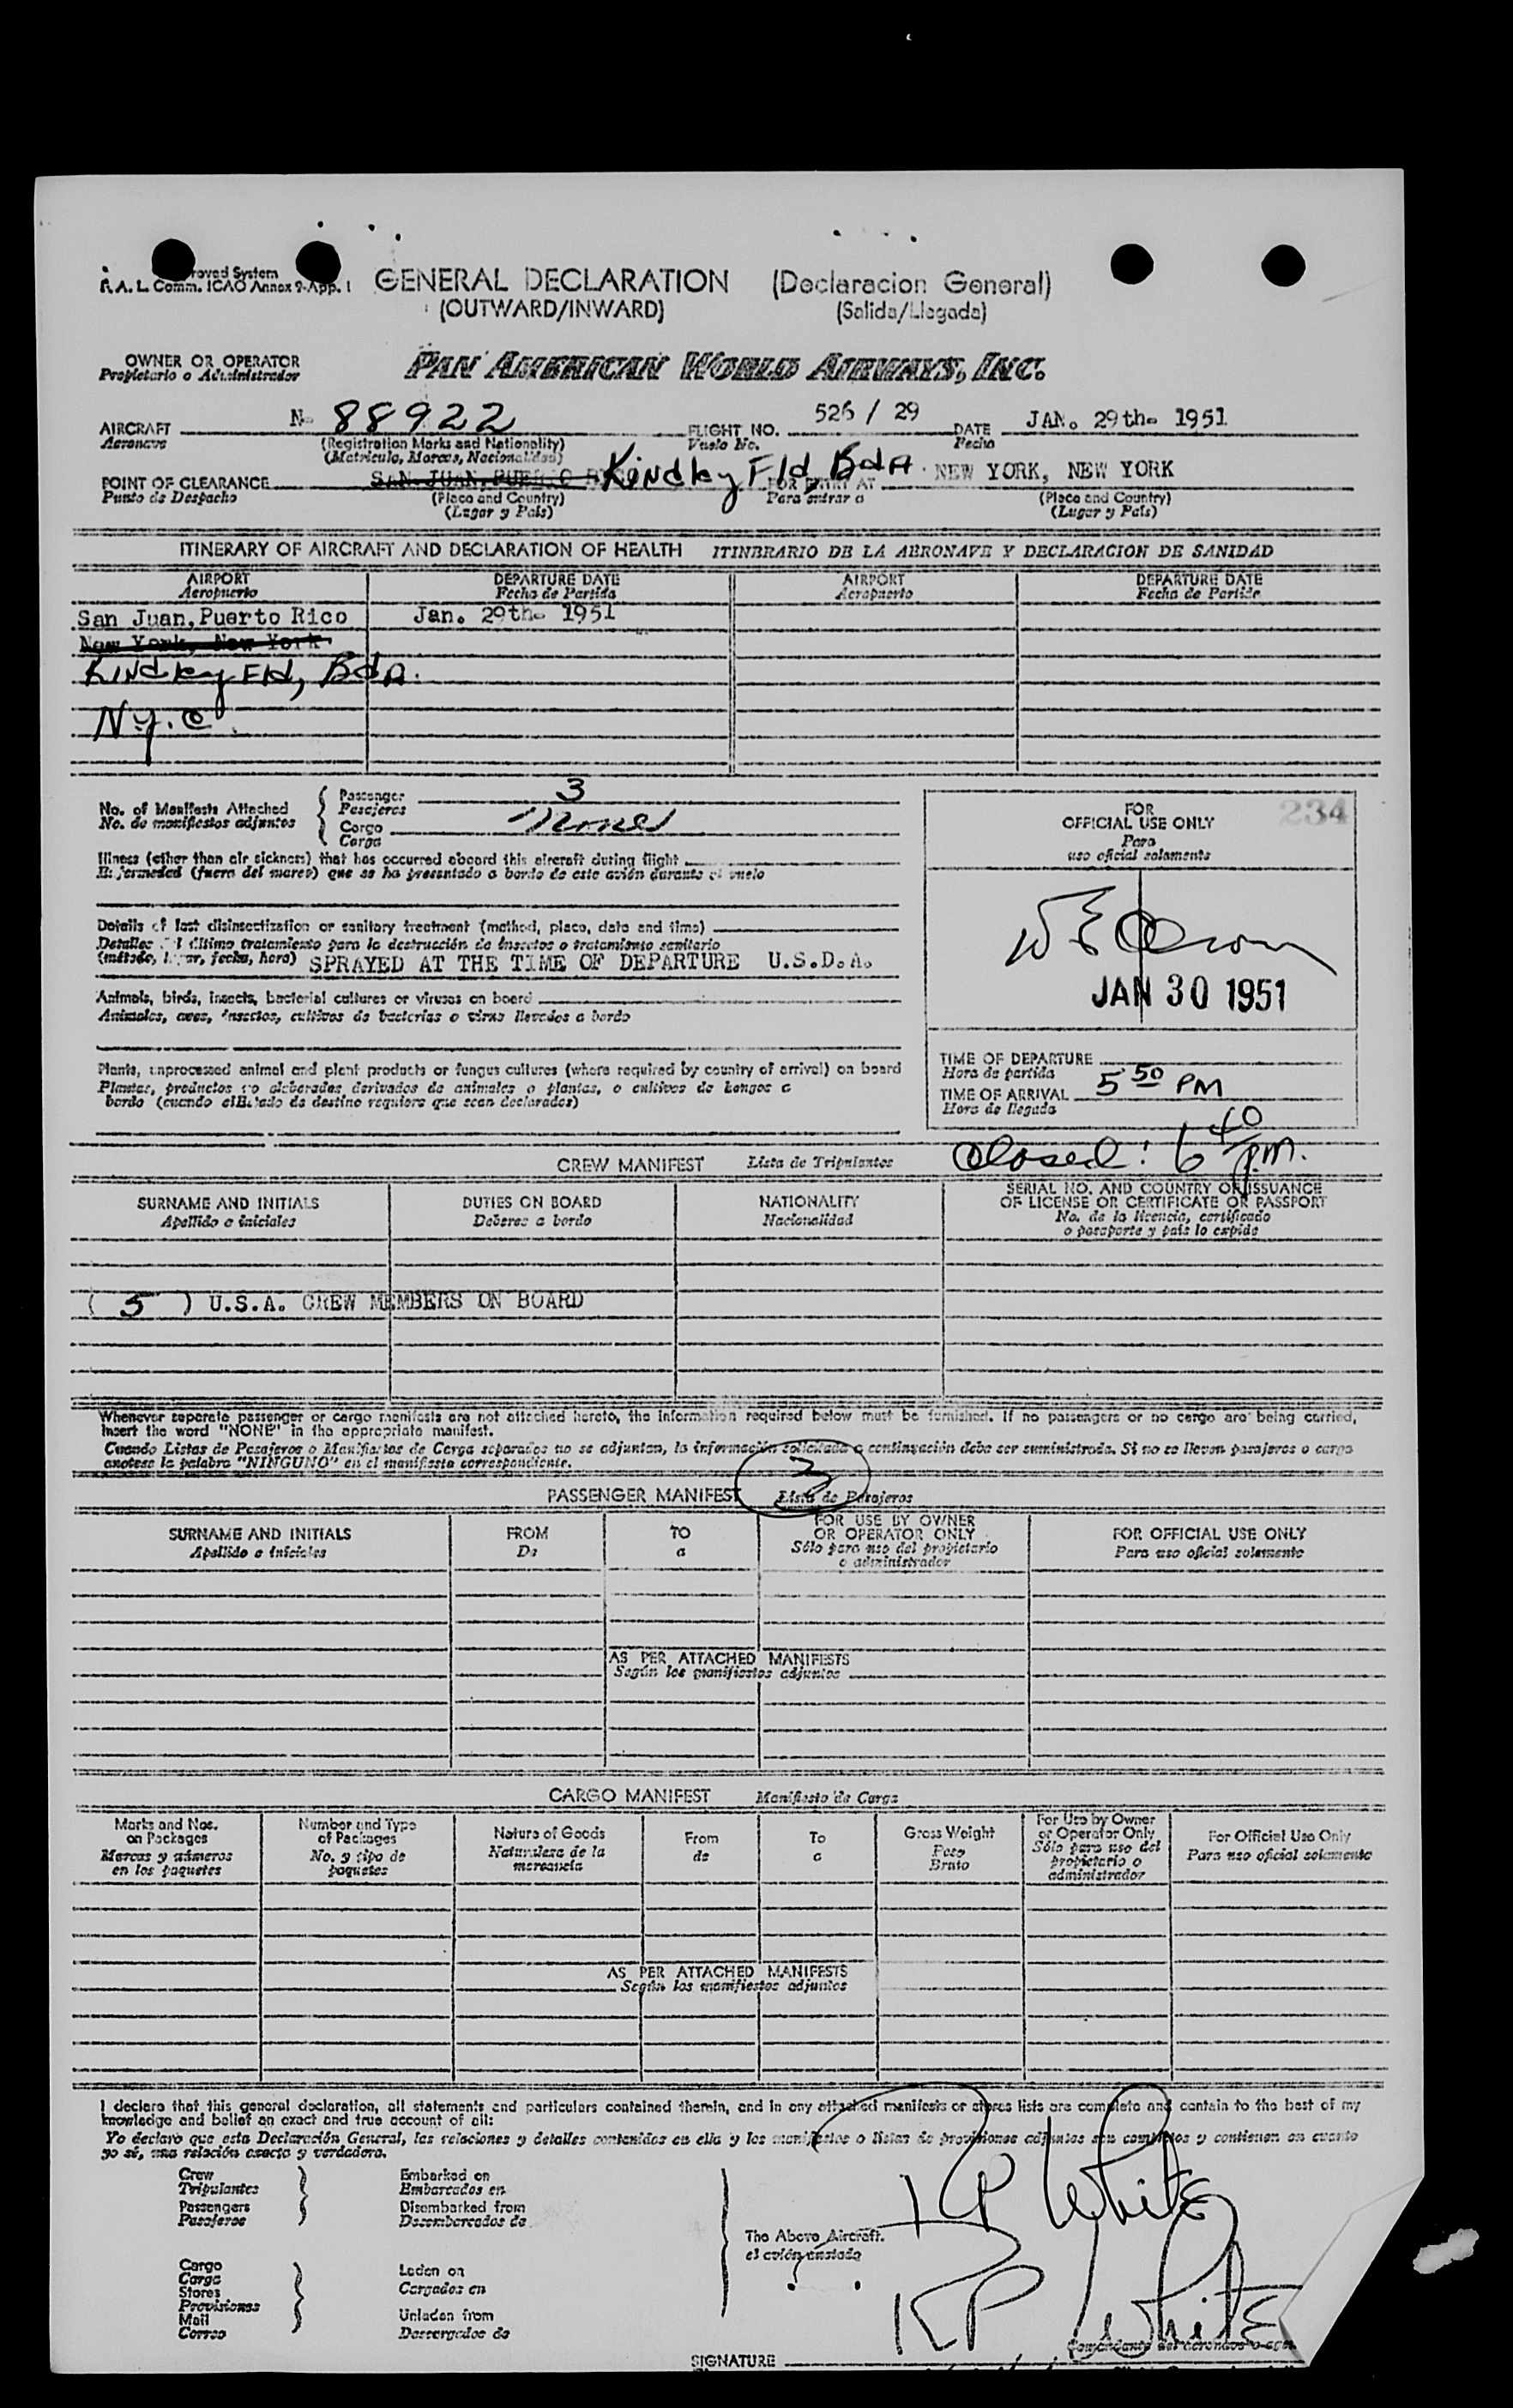 roved System
F. A. L. Comm. ICAO Annex 9-App. 1
GENERAL DECLARATION (Declaracion General)
(OUTWARD/INWARD) (Salida/Llegada)
OWNER OR OPERATOR
Propietario o Administrador
PAN AMERICAN WORLD AIRWAYS, INC.
AIRCRAFT N- 88922 FLIGHT NO. 526 / 29 DATE JAN. 29th- 1951
Aeronave (Registration Marks and Nationality) Vuelo No. Fecha
(Matricula, Marcas, Nacionalidad)
POINT OF CLEARANCE SAN JUAN, PUERTO Kindley Fld, Bda FOR ENTRY AT NEW YORK, NEW YORK
Punto de Despacho (Place and Country) Para entrar a (Place and Country)
(Lugar y Pais) (Lugar y Pais)
ITINERARY OF AIRCRAFT AND DECLARATION OF HEALTH ITINERARIO DE LA AERONAVE Y DECLARACION DE SANIDAD
AIRPORT DEPARTURE DATE AIRPORT DEPARTURE DATE
Aeropuerto Fecha de Partida Aeropuerto Fecha de Partida
San Juan, Puerto Rico Jan. 29th- 1951
New York, New York
Kindley Fld, Bda.
N.y.c.
No. of Manifests Attached
No. de manifiestos adjuntos
Passenger 3
Pasajeros
Cargo None
Carga
Illness (other than air sickness) that has occurred aboard this aircraft during flight
Enfermedad (fuera del mareo) que se ha presentado a bordo de este avión durante el vuelo
Details of last disinsectization or sanitary treatment (method, place, date and time)
Detalles del último tratamiento para la destrucción de insectos o tratamiento sanitario
(método, lugar, fecha, hora) SPRAYED AT THE TIME OF DEPARTURE U.S.D.A.
Animals, birds, insects, bacterial cultures or viruses on board
Animales, aves, insectos, cultivos de bacterias o virus llevados a bordo
Plants, unprocessed animal and plant products or fungus cultures (where required by country of arrival) on board
Plantas, productos no elaborados derivados de animales o plantas, o cultivos de hongos a
bordo (cuando el Estado de destino requiera que sean declarados)
FOR 234
OFFICIAL USE ONLY
Para
uso oficial solamente
JAN 30 1951
TIME OF DEPARTURE
Hora de partida
TIME OF ARRIVAL 5 50 PM
Hora de llegada
Closed: 6 40 P.M.
CREW MANIFEST Lista de Tripulantes
SURNAME AND INITIALS DUTIES ON BOARD NATIONALITY SERIAL NO. AND COUNTRY OF ISSUANCE
OF LICENSE OR CERTIFICATE OR PASSPORT
Apellido e iniciales Deberes a bordo Nacionalidad No. de la licencia, certificado
o pasaporte y pais lo expide
( 5 ) U.S.A. CREW MEMBERS ON BOARD
Whenever separate passenger or cargo manifests are not attached hereto, the information required below must be furnished. If no passengers or no cargo are being carried,
insert the word "NONE" in the appropriate manifest.
Cuando Listas de Pasajeros o Manifiestos de Carga separados no se adjuntan, la información solicitada a continuación debe ser suministrada. Si no se llevan pasajeros o carga
anotese la palabra "NINGUNO" en el manifiesto correspondiente.
3
PASSENGER MANIFEST Lista de Pasajeros
SURNAME AND INITIALS FROM TO FOR USE BY OWNER
OR OPERATOR ONLY FOR OFFICIAL USE ONLY
Apellido e iniciales De a Sólo para uso del propietario
o administrador Para uso oficial solamente
AS PER ATTACHED MANIFESTS
Según los manifiestos adjuntos
CARGO MANIFEST Manifiesto de Carga
Marks and Nos.
on Packages
Marcas y números
en los paquetes
Number and Type
of Packages
No. y tipo de
paquetes
Nature of Goods
Naturaleza de la
mercancía
From
de
To
a
Gross Weight
Peso
Bruto
For Use by Owner
or Operator Only
Sólo para uso del
propietario o
administrador
For Official Use Only
Para uso oficial solamente
AS PER ATTACHED MANIFESTS
Según los manifiestos adjuntos
I declare that this general declaration, all statements and particulars contained therein, and in any attached manifests or stores lists are complete and contain to the best of my
knowledge and belief an exact and true account of all:
Yo declaro que esta Declaración General, las relaciones y detalles contenidos en ella y los manifiestos o listas de provisiones adjuntos son completos y contienen en cuanto
yo sé, una relación exacta y verdadera.
Crew
Tripulantes
Passengers
Pasajeros
Embarked on
Embarcados en
Disembarked from
Desembarcados de
Cargo
Carga
Stores
Provisiones
Mail
Correo
Laden on
Cargados en
Unladen from
Descargados de
The Above Aircraft.
el avión anotado
RP White
RP White
SIGNATURE